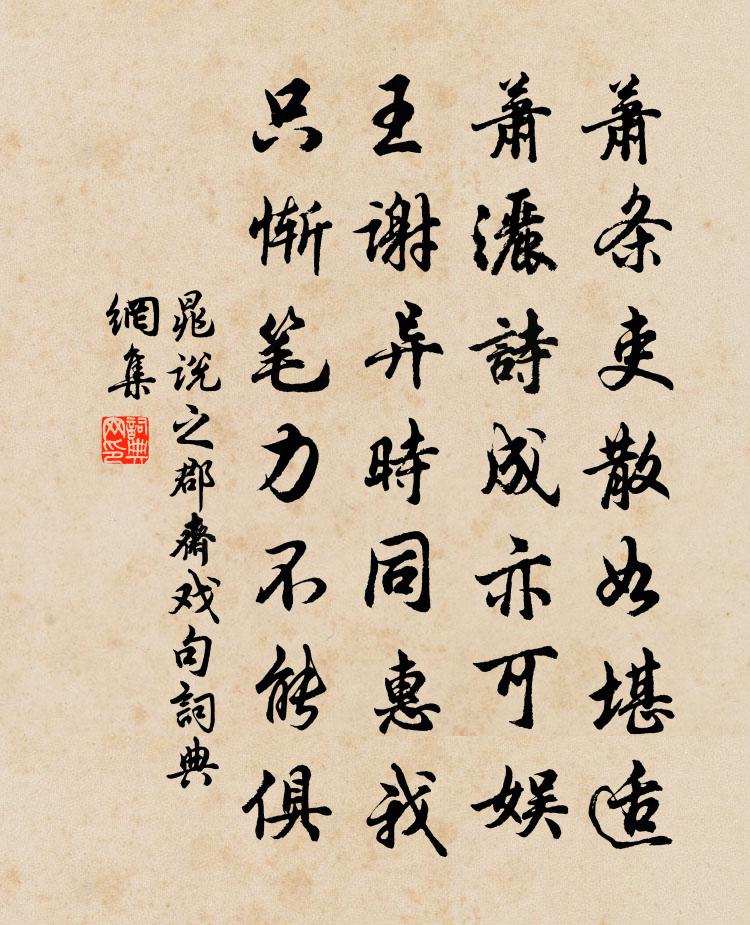 萧条吏散如堪适
萧灑詩成亦可娱
王谢异時同惠我
只惭笔力不能俱
晁说之郡齋戏句詞典
網集
詞典網印